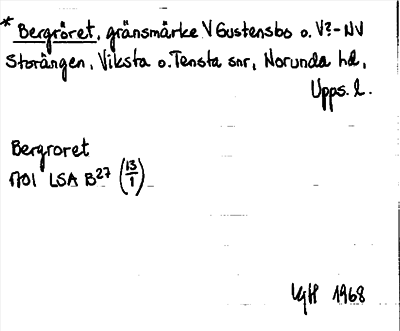 * Bergröret, gränsmärke V Gustensbo o. V?-NV
Storängen, Viksta o. Tensta snr, Norunda hd,
Upps. l.
Bergroret
1701 LSA B27 (13/1)
1968